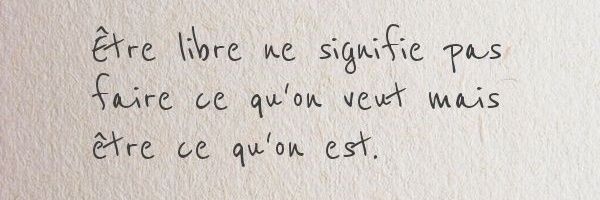 Être libre ne signifie pas
faire ce qu'on veut mais
être ce qu'on est.